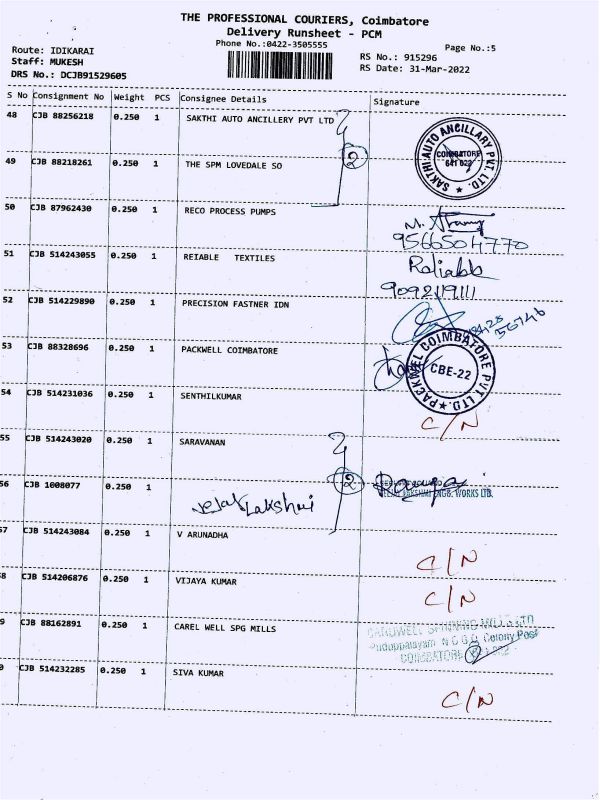 THE PROFESSIONAL COURIERS, Coimbatore
Delivery Runsheet - PCM
Phone No.:0422-3505555
Page No.:5
Route: IDIKARAI
Staff: MUKESH
DRS No.: DCJB91529605
RS No.: 915296
RS Date: 31-Mar-2022
S No Consignment No Weight PCS Consignee Details Signature
48 CJB 88256218 0.250 1 SAKTHI AUTO ANCILLERY PVT LTD
2
SAKTHI AUTO ANCILLARY PVT. LTD. ★
COIMBATORE
641 022
49 CJB 88218261 0.250 1 THE SPM LOVEDALE SO
50 CJB 87962430 0.250 1 RECO PROCESS PUMPS
9566504770
51 CJB 514243055 0.250 1 REIABLE TEXTILES
Reliable
9092119111
52 CJB 514229890 0.250 1 PRECISION FASTNER IDN
56746
53 CJB 88328696 0.250 1 PACKWELL COIMBATORE
PACKWEL COIMBATORE PVT. LTD. ★
CBE-22
54 CJB 514231036 0.250 1 SENTHILKUMAR
C/N
55 CJB 514243020 0.250 1 SARAVANAN
2
56 CJB 1008077 0.250 1
Lakshmi
LAKSHMI ENGG. WORKS LTD.
57 CJB 514243084 0.250 1 V ARUNADHA
C/N
8 CJB 514206876 0.250 1 VIJAYA KUMAR
C/N
9 CJB 88162891 0.250 1 CAREL WELL SPG MILLS
CARDWELL SPINNING MILLS LTD
Puduppalayam N G G O Colony Post
COIMBATORE
0 CJB 514232285 0.250 1 SIVA KUMAR
C/N